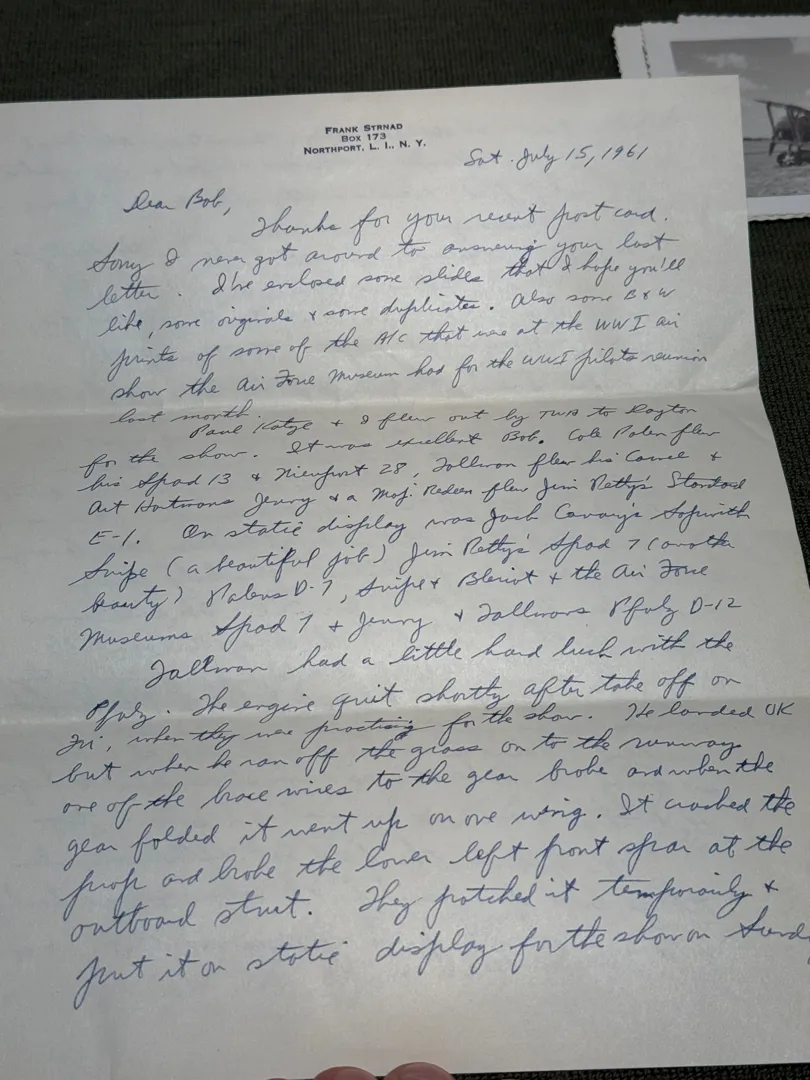 FRANK STRNAD
BOX 173
NORTHPORT, L. I., N. Y.
Sat. July 15, 1961
Dear Bob,
Thanks for your recent post card.
Sorry I never got around to answering your last
letter. I've enclosed some slides that I hope you'll
like, some originals & some duplicates. Also some B & W
prints of some of the A/C that were at the WWI air
show the Air Force Museum had for the WWI pilots reunion
last month.
Paul Kotze & I flew out by TWA to Dayton
for the show. It was excellent Bob. Cole Palen flew
his Spad 13 & Nieuport 28, Tallman flew his Camel &
Art Hartmans Jenny & a Maj. Redeen flew Jim Petty's Standard
E-1. On static display was Jack Canary's Sopwith
Snipe (a beautiful job) Jim Petty's Spad 7 (another
beauty) Palens D-7, Snipe & Bleriot & the Air Force
Museums Spad 7 & Jenny & Tallmans Pfalz D-12
Tallman had a little hard luck with the
Pfalz. The engine quit shortly after take off on
Fri, when they were practising for the show. He landed OK
but when he ran off the grass on to the runway
one of the brace wires to the gear broke and when the
gear folded it went up on one wing. It cracked the
prop and broke the lower left front spar at the
outboard strut. They patched it temporarily &
put it on static display for the show on